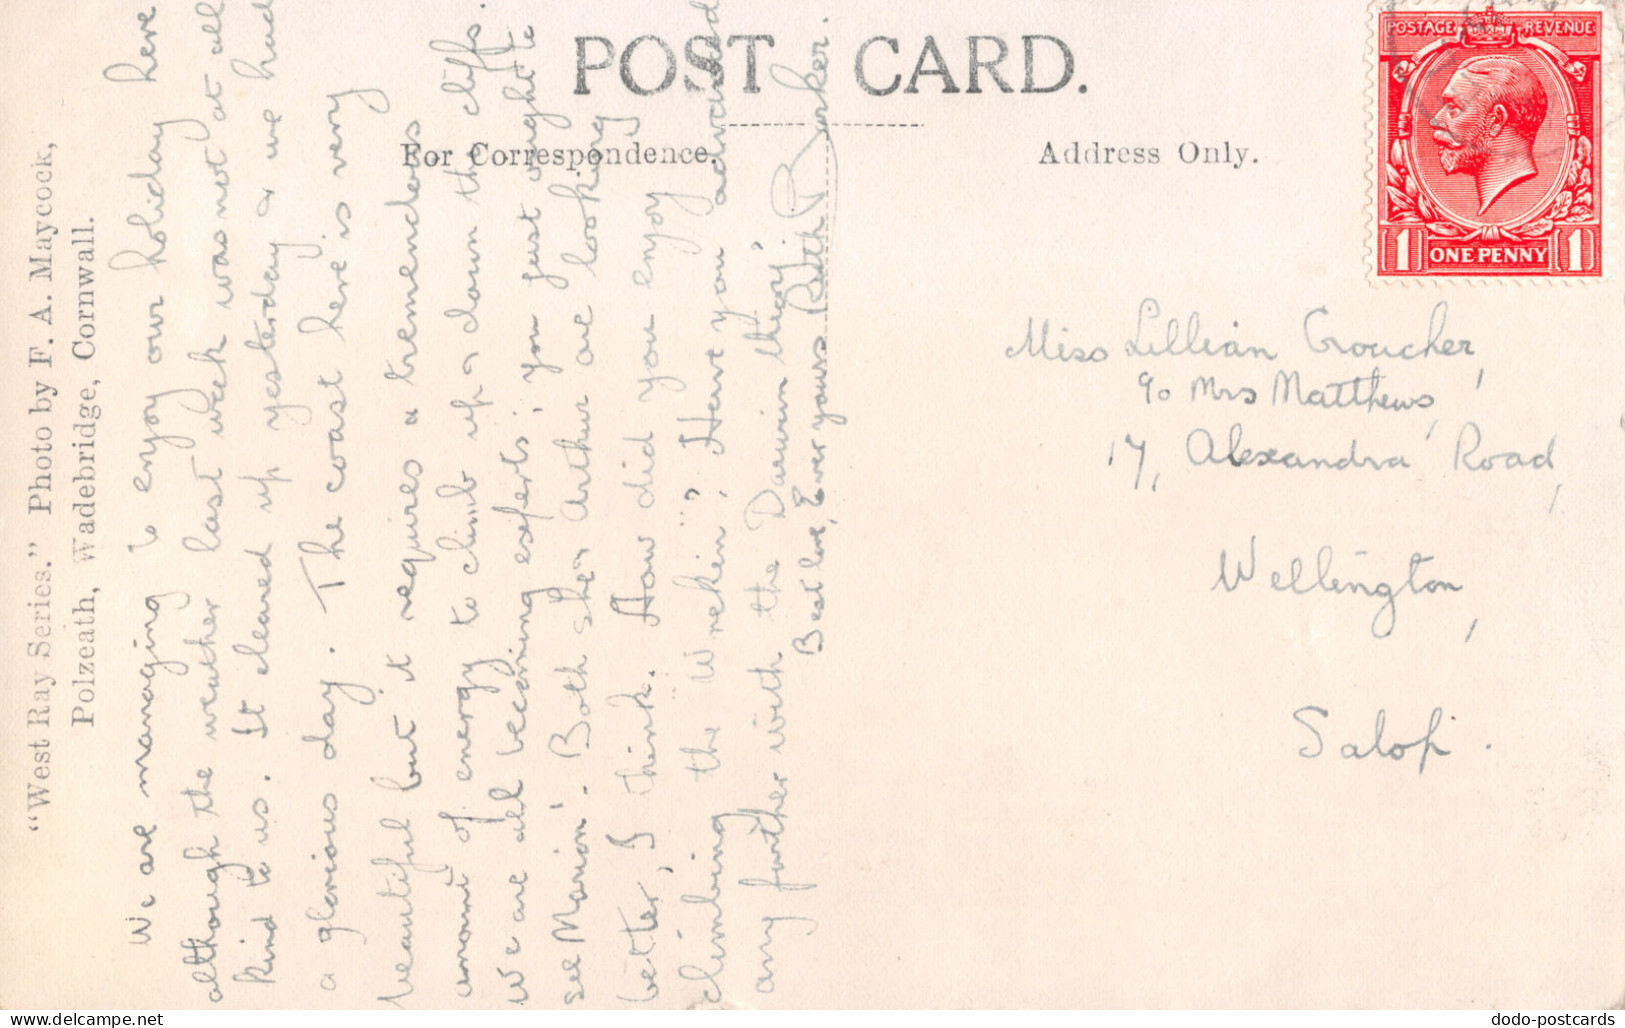 POST CARD.
For Correspondence.
Address Only.
POSTAGE REVENUE
1 ONE PENNY 1
"West Ray Series." Photo by F. A. Maycock,
Polzeath, Wadebridge, Cornwall.
We are managing to enjoy our holiday here
although the weather last week was not at all
kind to us. It cleared up yesterday & we had
a glorious day. The coast here is very
beautiful but it requires a tremendous
amount of energy to climb up & down the cliffs.
We are all becoming experts; you just ought to
see Marion! Both she & Arthur are looking
better, I think. How did you enjoy
climbing the "Wrekin"? Have you advanced
any further with the Darwin theory?
Best love, Ever yours Ruth Barker.
Miss Lillian Croucher,
c/o Mrs Matthews,
17, Alexandra Road,
Wellington,
Salop.
dodo-postcards